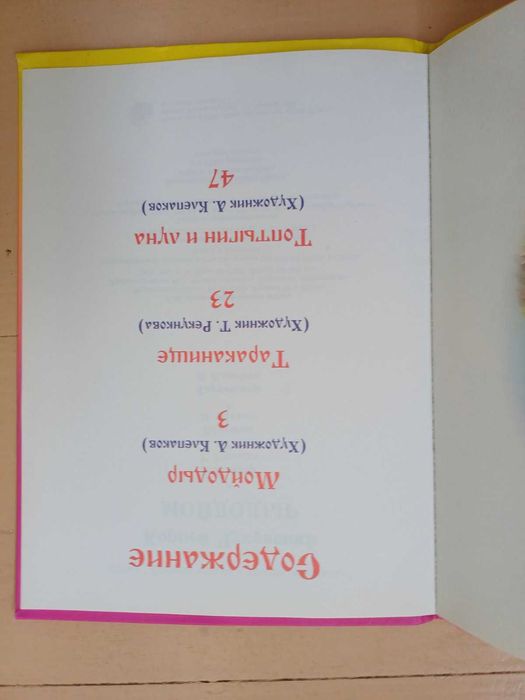 Содержание
Мойдодыр
(Художник А. Клепаков)
3
Тараканище
(Художник Т. Рекункова)
23
Топтыгин и луна
(Художник А. Клепаков)
47